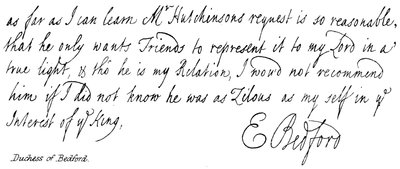 as far as I can learn Mr Hutchinsons request is so reasonable,
that he only wants Friends to represent it to my Lord in a
true light, & tho' he is my Relation, I wowd not recommend
him if I did not know he was as Zilous as my self in ye
Interest of ye King,
E Bedford
Duchess of Bedford.